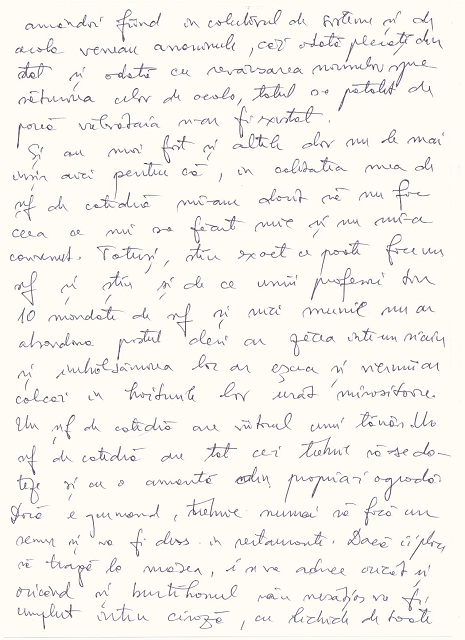 amândoi fiind in colectivul de sisteme și de
acolo veneau anonimele, căci odată plecați din
dat și odată cu revărsarea
rătăcirea celor de acolo, totul s-a potolit de
parcă n-ar fi existat.
Și au mai fost și altele dar nu le mai
înșir aici pentru că, in calitatea mea de
șef de catedră mi-am dorit să nu fac
ceea ce mi s-a făcut mie și nu mi-a
convenit. Totuși, știu exact ce poate face un
șef și știu și de ce unii profesori din
10 mandate de șef și nici
abandona postul deși ar zăcea intr-un sicriu
și imbălsămarea lor ar eșua și viermii ar
colcăi in hoiturile lor urât mirositoare.
Un șef de catedră are viitorul unui tânăr. Un
șef de catedră are tot ce-i trebuie să-se do-
teze și cu o amantă din propria-i ogradă.
Dacă e gurmand, trebuie numai să facă un
semn și va fi dus in restaurante. Dacă ii place
să tragă la măsea, i se va aduce oricât și
oricând și burdihanul său nesățios va fi
umplut intru ciroză, cu lichide de toate